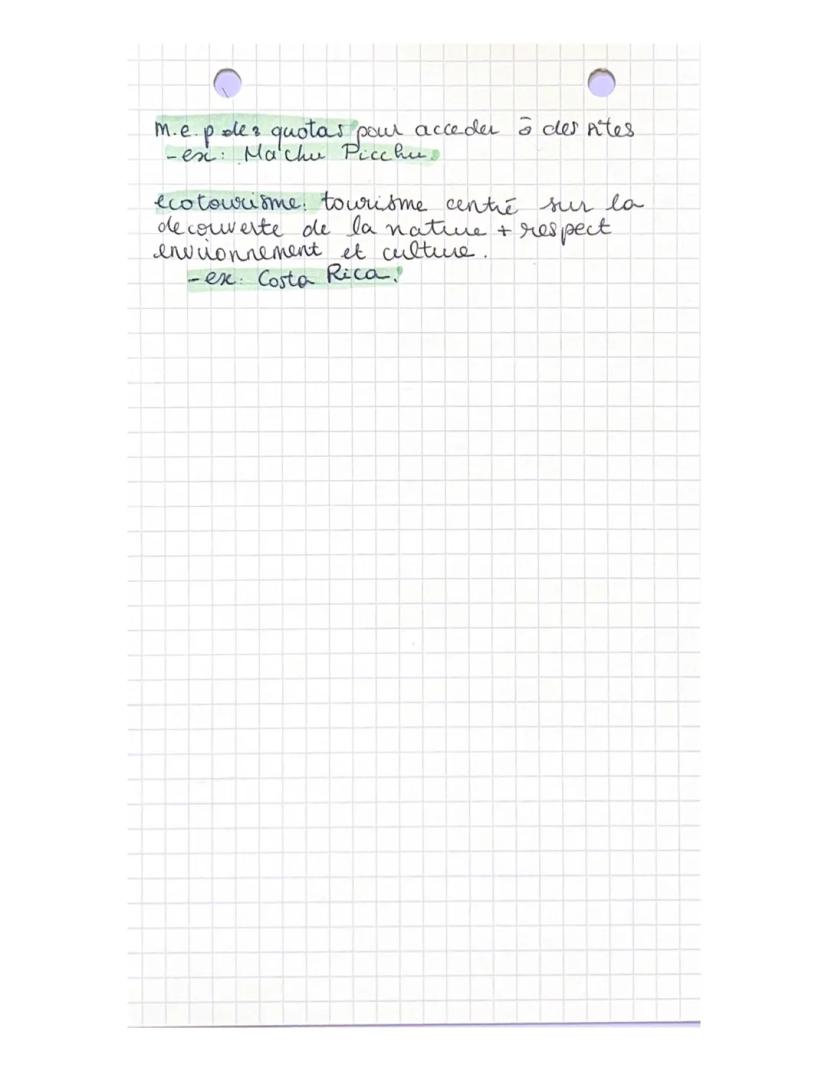 m.e.p des quotas pour acceder à des sites
-ex: Machu Picchu.
ecotourisme: tourisme centré sur la
decouverte de la nature + respect
environnement et culture.
-ex: Costa Rica.